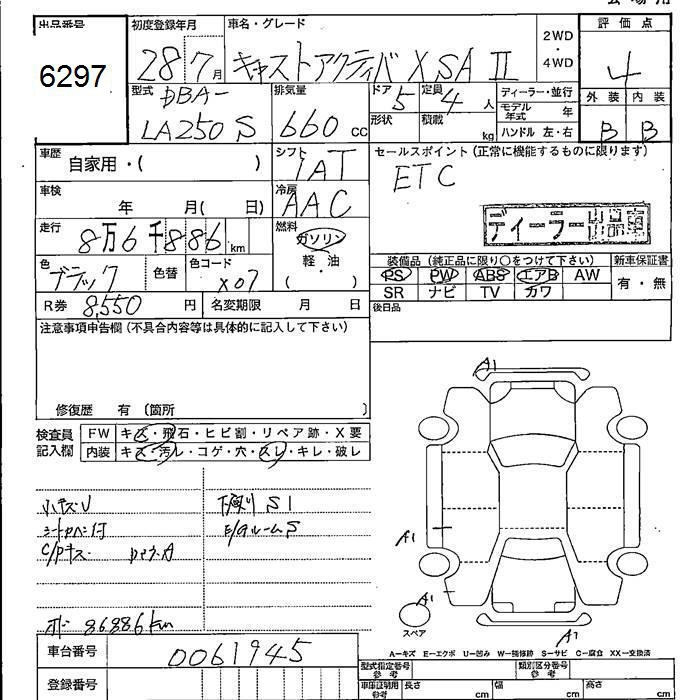 会場用
出品番号 初度登録年月 車名・グレード 2WD・4WD 評価点
6297 28 7月 キャストアクティバ X SA II 4
型式 DBA- 排気量 ドア 5 定員 4人 ディーラー・並行 外装 内装
LA250S 660cc 形状 積載 kg モデル年式 年 B B
ハンドル 左・右
車歴 自家用・( ) シフト IAT セールスポイント(正常に機能するものに限ります)
車検 年 月( 日) 冷房 AAC ETC
走行 8万6千886km 燃料 ガソリン ディーラー出品車
軽・油
( )
色 ブラック 色替 色コード X07 装備品(純正品に限り○をつけて下さい) 新車保証書
PS PW ABS エアB AW 有・無
R券 8,550円 名変期限 月 日 SR ナビ TV カワ
注意事項申告欄(不具合内容等は具体的に記入して下さい) 後日品
修復歴 有 (箇所 )
検査員記入欄 FW キズ・飛石・ヒビ割・リペア跡・X要
内装 キズ・汚レ・コゲ・穴・スレ・キレ・破レ
小キズU 下廻り S1
E/GルームS
C/Pキズ
86886km
A1
A1
A1
A1
スペア
A−キズ E−エクボ U−凹み W−補修跡 S−サビ C−腐食 XX−交換済
車台番号 0061945 型式指定番号 参考 類別区分番号 参考
登録番号 車庫証明用 参考 長さ cm 幅 cm 高さ cm